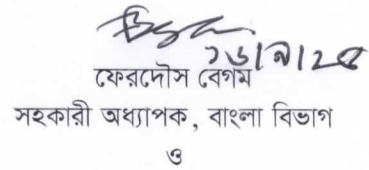 ফেরদৌস বেগম
সহকারী অধ্যাপক, বাংলা বিভাগ
ও